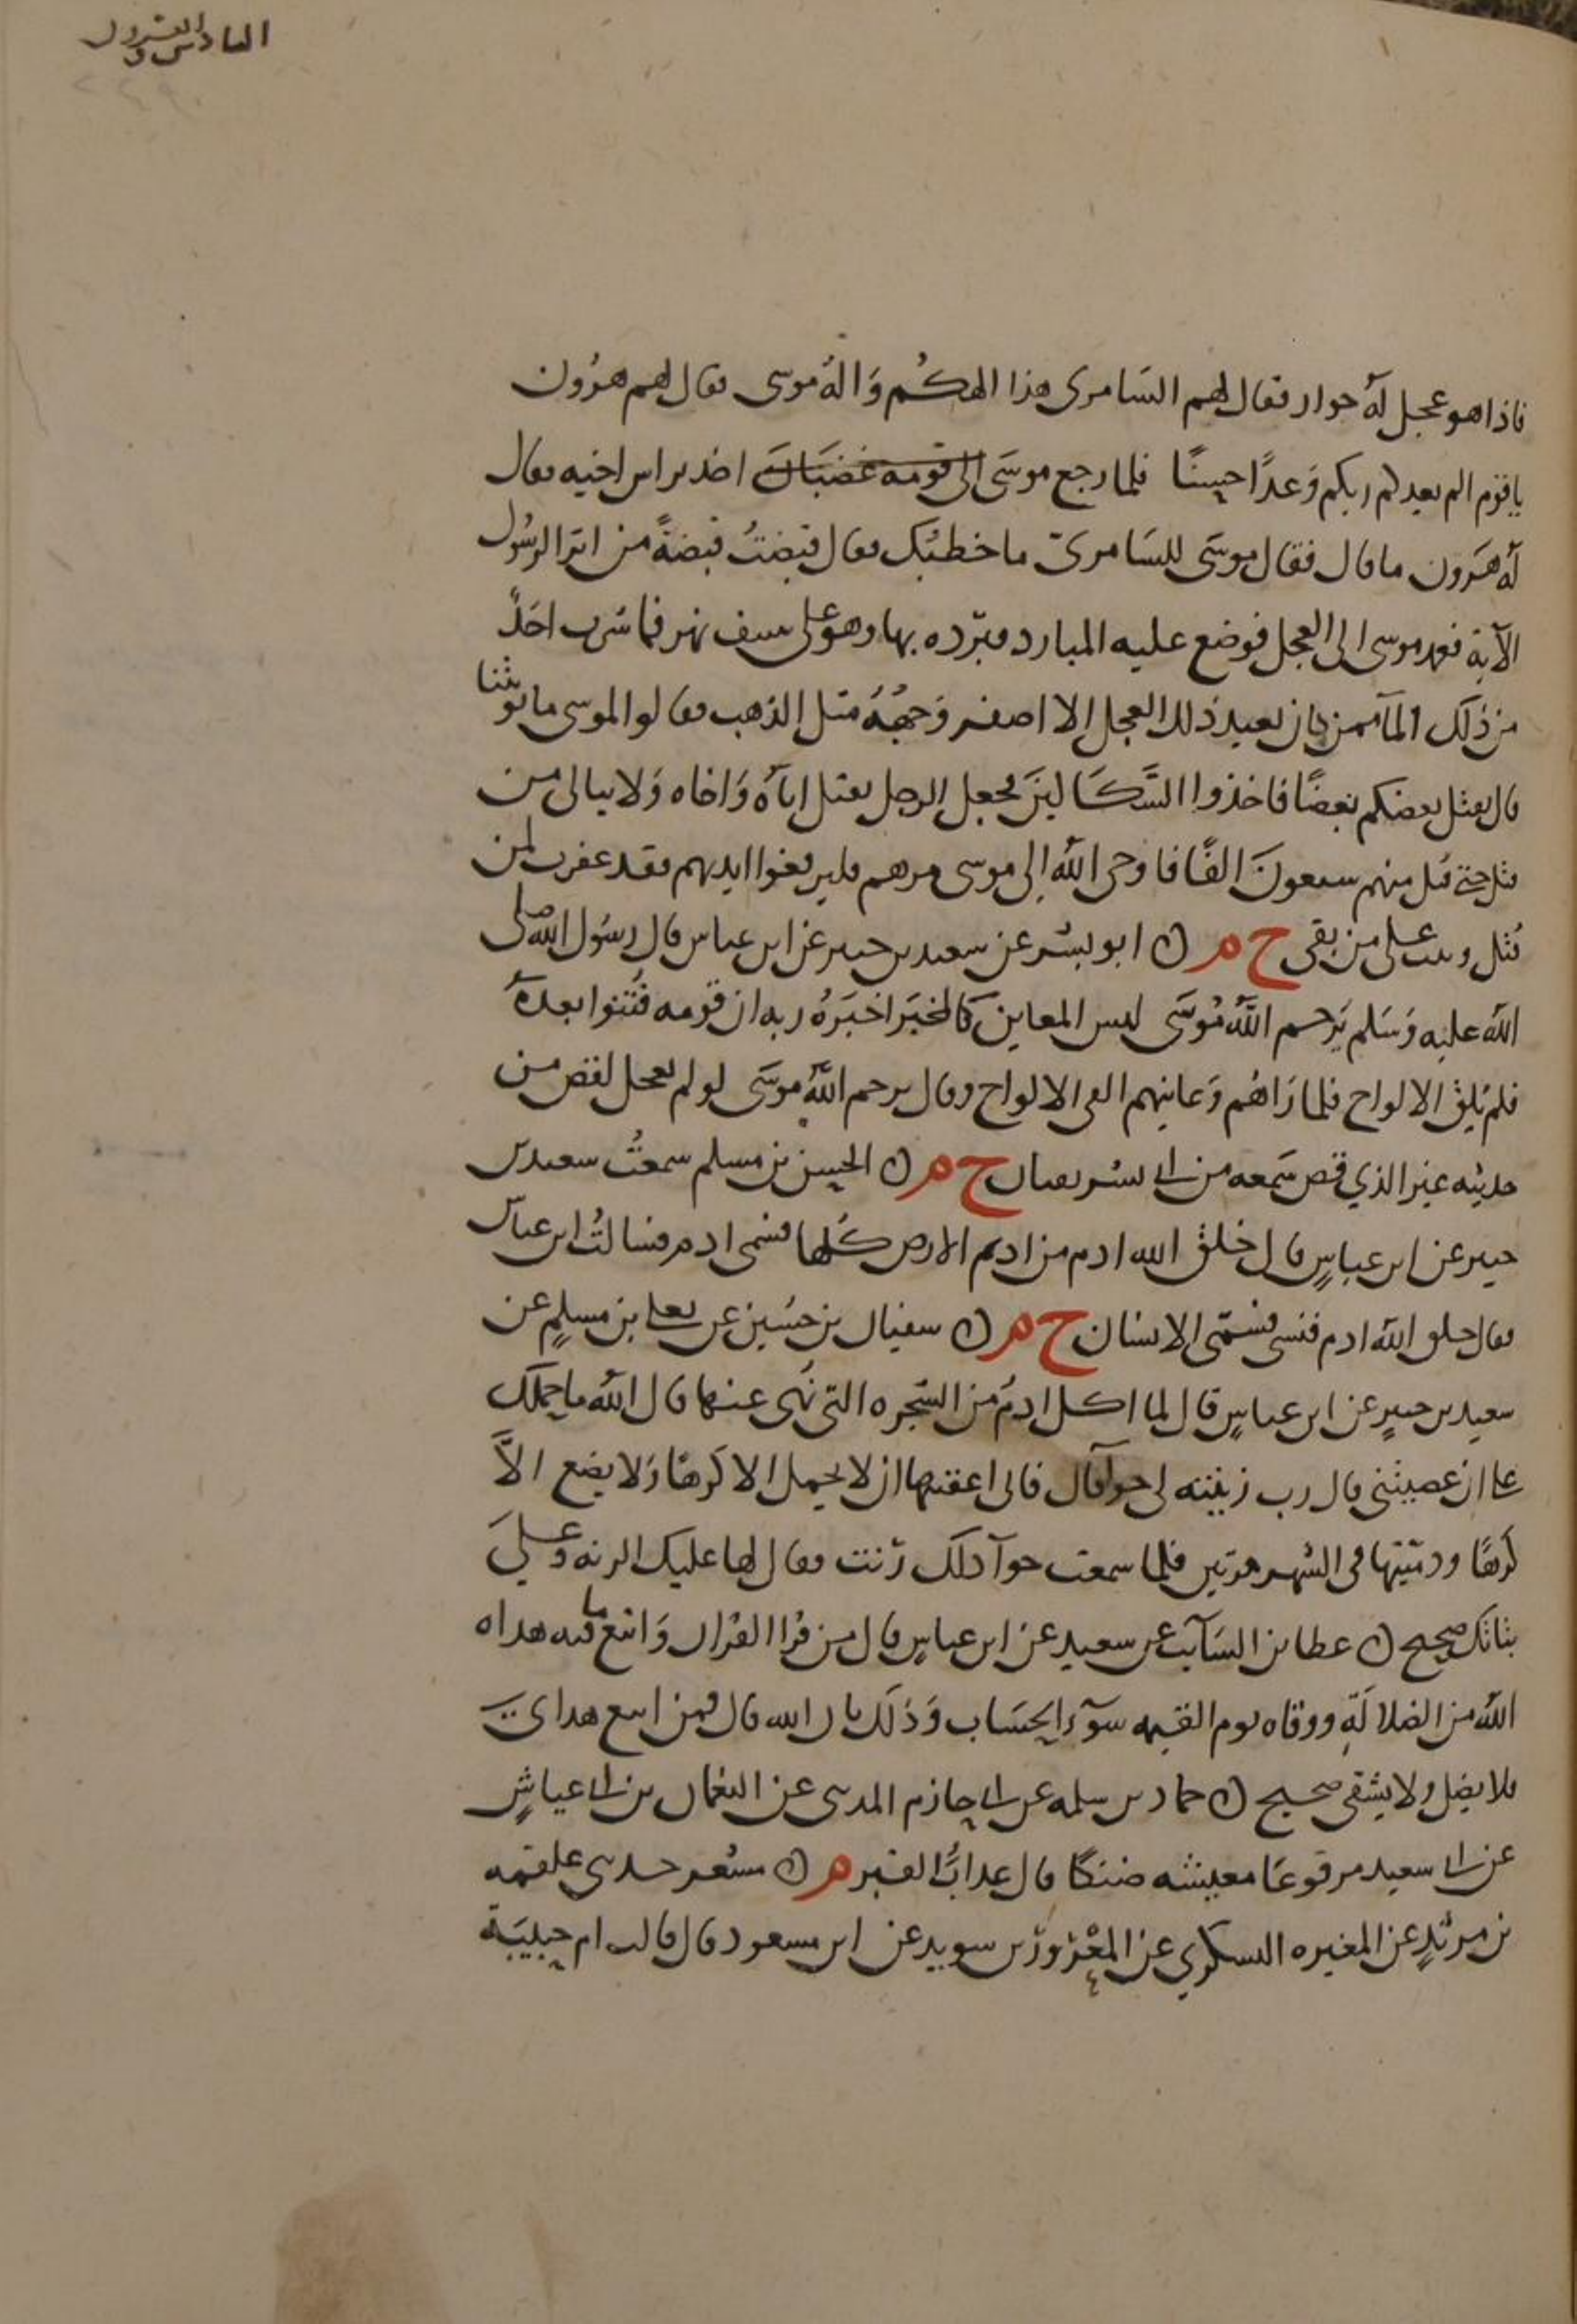 السادس والعشرون
فاذا هو عجل له خوار فقال لهم السامرى هذا الهكم واله موسى فقال لهم هرون
يا قوم الم يعدكم ربكم وعدا حسنا فلما رجع موسى الى قومه غضبان اخذ براس اخيه فقال
له هرون ما قال فقال موسى للسامرى ما خطبك فقال قبضت قبضة من اثر الرسول
الآية فعمد موسى الى العجل فوضع عليه المبارد فبرده بها وهو على شف نهر فما شرب احد
من ذلك الماء ممن كان يعبد ذلك العجل الا اصفر وجهه مثل الذهب فقالوا لموسى ما توبتنا
قال يقتل بعضكم بعضا فاخذوا السكاكين فجعل الرجل يقتل اباه واخاه ولا يبالى من
قتل حتى قتل منهم سبعون الفا فاوحى الله الى موسى مرهم فليرفعوا ايديهم فقد غفرت لمن
قتل وتبت على من بقى خ م ن ابو بشر عن سعيد بن جبير عن ابن عباس قال رسول الله صلى
الله عليه وسلم يرحم الله موسى ليس المعاين كالمخبر اخبره ربه ان قومه فتنوا بعده
فلم يلق الالواح فلما راهم وعاينهم القى الالواح وقال يرحم الله موسى لو لم يعجل لقص من
حديثه غير الذي قص سمعه من ابى بشر ثقتان خ م ن الحسن بن مسلم سمعت سعيد بن
جبير عن ابن عباس قال خلق الله ادم من اديم الارض كلها فسمى ادم فسالت ابن عباس
فقال خلق الله ادم فنسى فسمى الانسان خ م ن سفيان بن حسين عن يعلى بن مسلم عن
سعيد بن جبير عن ابن عباس قال لما اكل ادم من الشجره التى نهى عنها قال الله ما حملك
على ان عصيتنى قال رب زينته لى حوآ قال فانى اعقبتها ان لا تحمل الا كرها ولا تضع الا
كرها ودميتها فى الشهر مرتين فلما سمعت حوآ ذلك رنت فقال لها عليك الرنه وعلى
بناتك صحيح ن عطا بن السآيب عن سعيد عن ابن عباس قال من قرا القران واتبع ما فيه هداه
الله من الضلالة ووقاه يوم القيمه سوء الحساب وذلك بان الله قال فمن اتبع هداى
فلا يضل ولا يشقى صحيح ن حماد بن سلمه عن ابى حازم المدنى عن النعمان بن ابى عياش
عن ابى سعيد مرفوعا معيشه ضنكا قال عذاب القبر م ن مسعر حدثنى علقمه
بن مرثد عن المغيره اليشكري عن المعرور بن سويد عن ابن مسعود قال قالت ام حبيبة